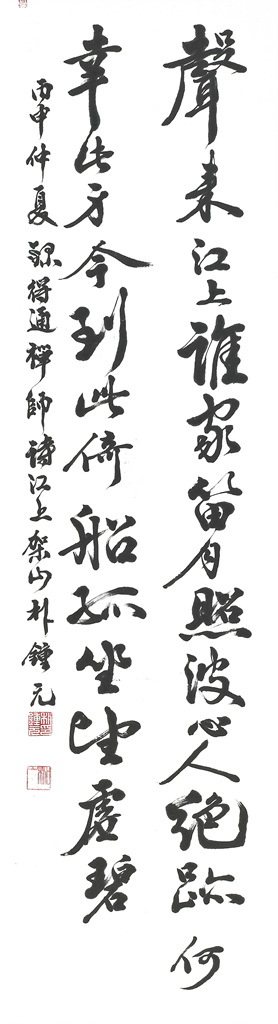 聲來江上誰家笛月照波心人絶跡何
幸此身今到此倚船孤坐望虛碧
丙申仲夏 錄得通禪師詩江上 架山朴鍾元